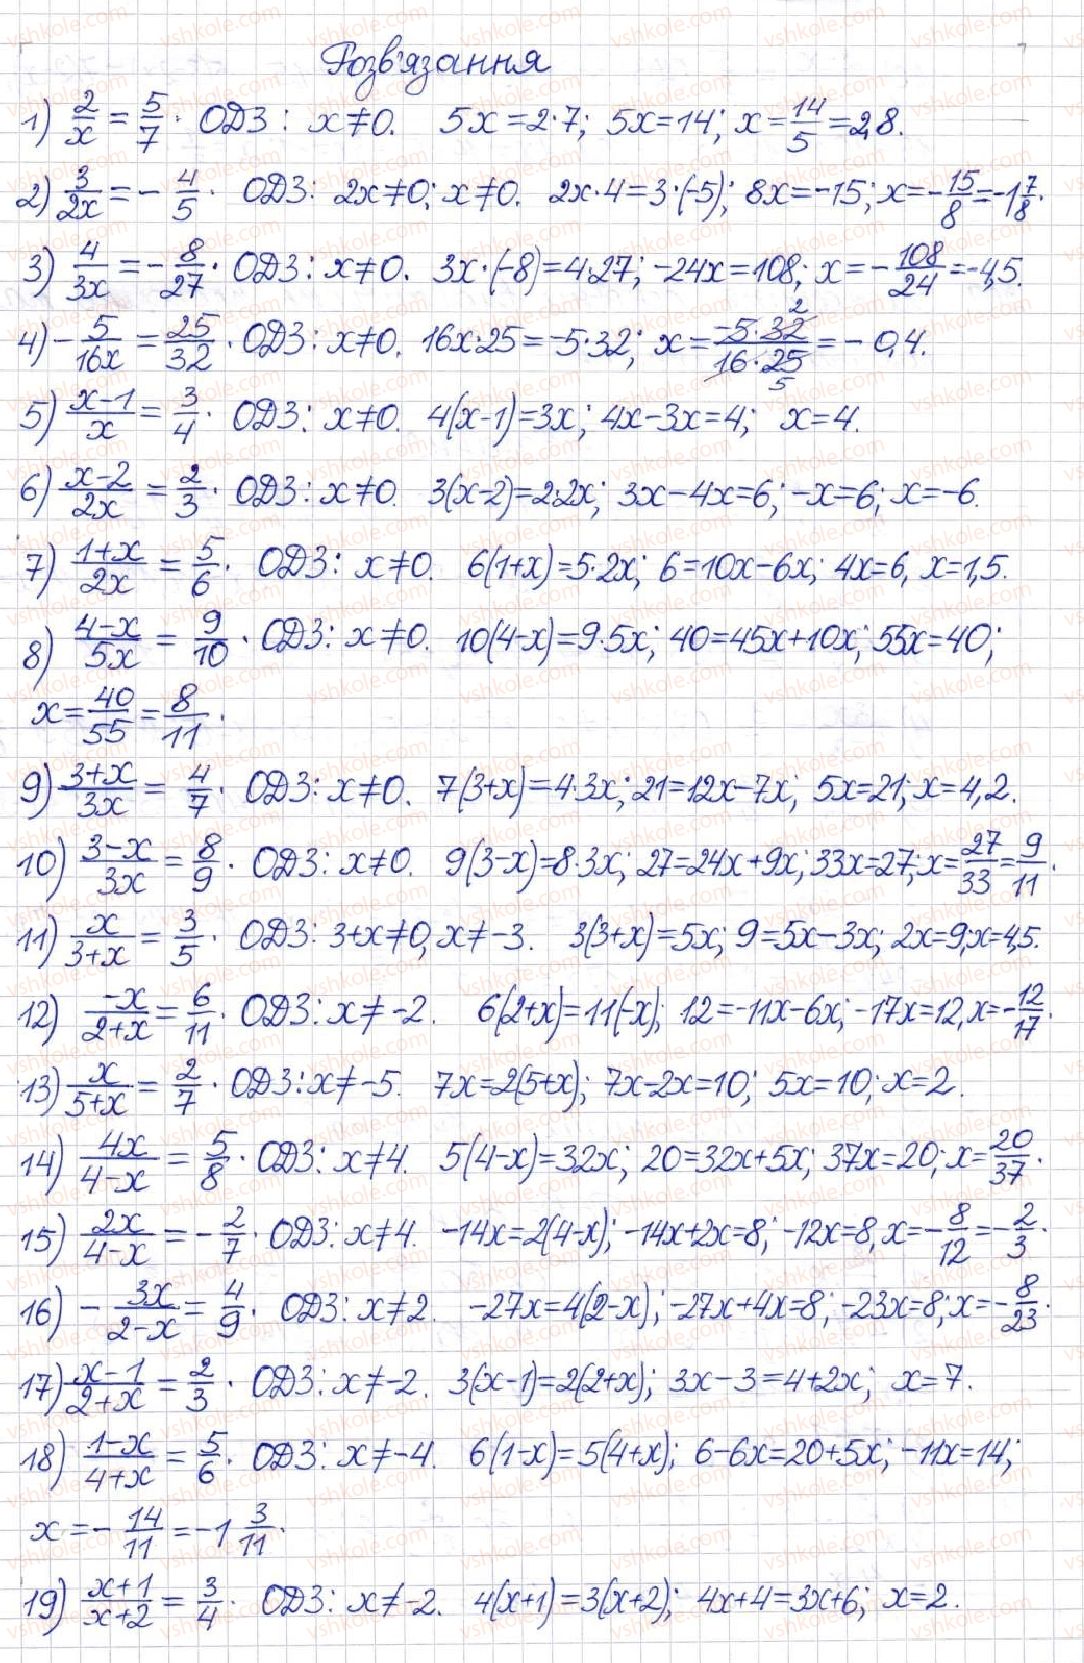 Розв'язання
1) 2/x = 5/7. ОДЗ: x≠0. 5x=2·7; 5x=14; x=14/5=2,8.
2) 3/2x = -4/5. ОДЗ: 2x≠0; x≠0. 2x·4=3·(-5); 8x=-15; x=-15/8=-1 7/8.
3) 4/3x = -8/27. ОДЗ: x≠0. 3x·(-8)=4·27; -24x=108; x=-108/24=-4,5.
4) -5/16x = 25/32. ОДЗ: x≠0. 16x·25=-5·32; x=-5·32/16·25=-0,4.
5) x-1/x = 3/4. ОДЗ: x≠0. 4(x-1)=3x; 4x-3x=4; x=4.
6) x-2/2x = 2/3. ОДЗ: x≠0. 3(x-2)=2·2x; 3x-4x=6; -x=6; x=-6.
7) 1+x/2x = 5/6. ОДЗ: x≠0. 6(1+x)=5·2x; 6=10x-6x; 4x=6, x=1,5.
8) 4-x/5x = 9/10. ОДЗ: x≠0. 10(4-x)=9·5x; 40=45x+10x; 55x=40;
x=40/55=8/11.
9) 3+x/3x = 4/7. ОДЗ: x≠0. 7(3+x)=4·3x; 21=12x-7x; 5x=21; x=4,2.
10) 3-x/3x = 8/9. ОДЗ: x≠0. 9(3-x)=8·3x; 27=24x+9x; 33x=27; x=27/33=9/11.
11) x/3+x = 3/5. ОДЗ: 3+x≠0, x≠-3. 3(3+x)=5x; 9=5x-3x; 2x=9; x=4,5.
12) -x/2+x = 6/11. ОДЗ: x≠-2. 6(2+x)=11(-x); 12=-11x-6x; -17x=12, x=-12/17.
13) x/5+x = 2/7. ОДЗ: x≠-5. 7x=2(5+x); 7x-2x=10; 5x=10; x=2.
14) 4x/4-x = 5/8. ОДЗ: x≠4. 5(4-x)=32x; 20=32x+5x; 37x=20; x=20/37.
15) 2x/4-x = -2/7. ОДЗ: x≠4. -14x=2(4-x); -14x+2x=8; -12x=8, x=-8/12=-2/3.
16) -3x/2-x = 4/9. ОДЗ: x≠2. -27x=4(2-x); -27x+4x=8; -23x=8; x=-8/23.
17) x-1/2+x = 2/3. ОДЗ: x≠-2. 3(x-1)=2(2+x); 3x-3=4+2x; x=7.
18) 1-x/4+x = 5/6. ОДЗ: x≠-4. 6(1-x)=5(4+x); 6-6x=20+5x; -11x=14;
x=-14/11=-1 3/11.
19) x+1/x+2 = 3/4. ОДЗ: x≠-2. 4(x+1)=3(x+2); 4x+4=3x+6; x=2.